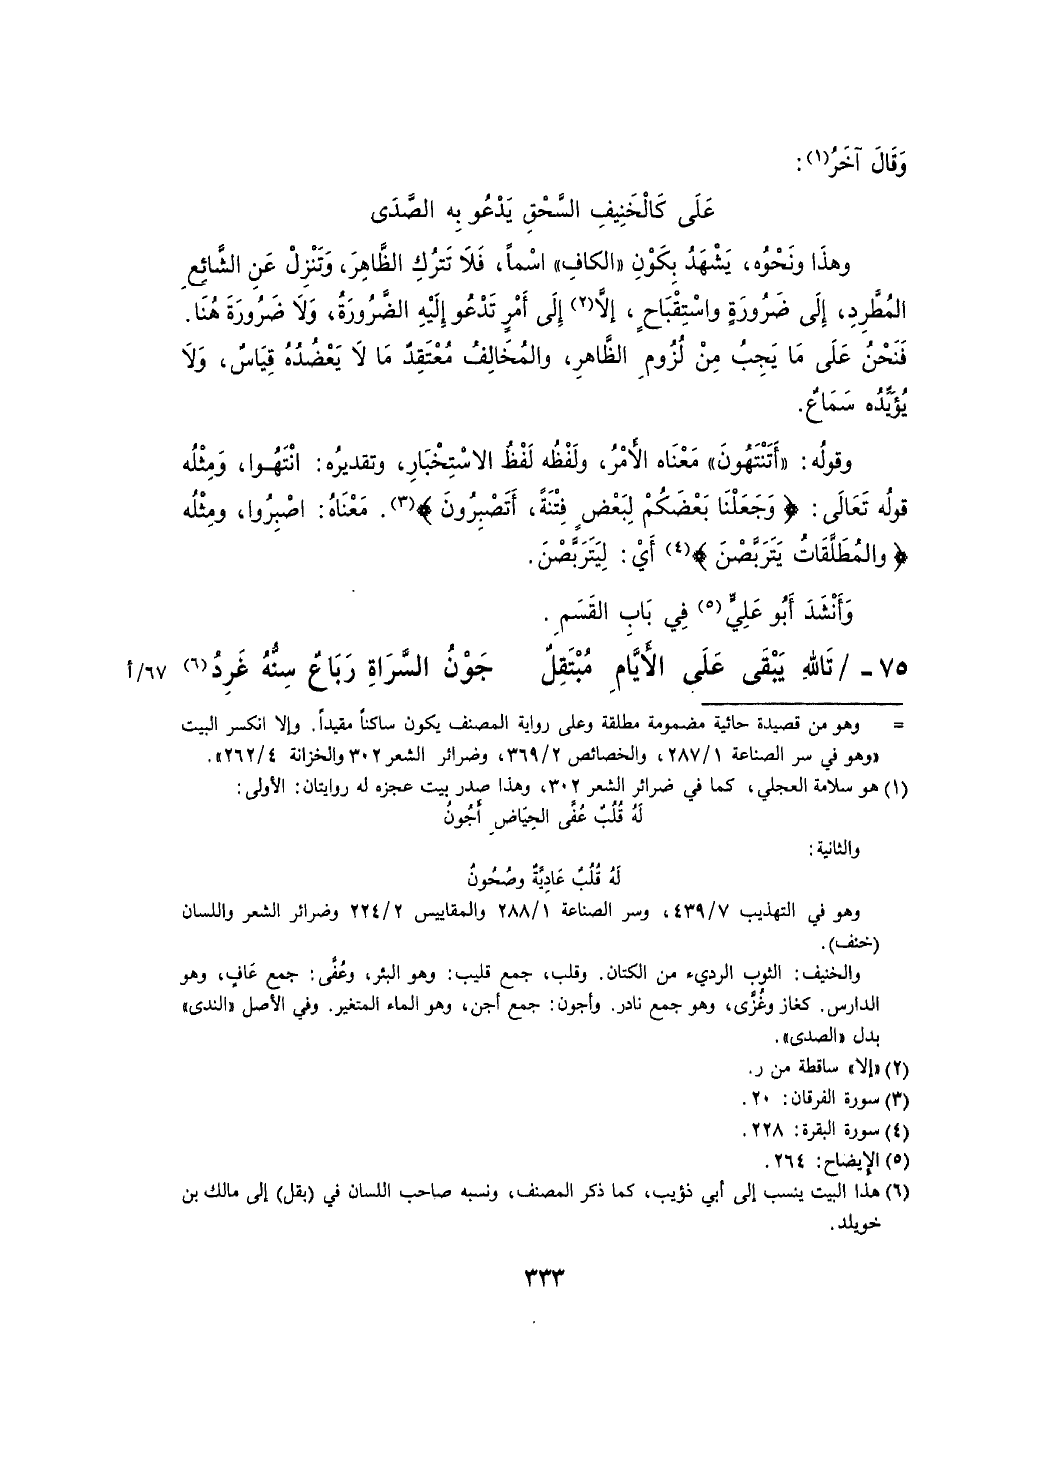 وَقَالَ آخَرُ(١) :
عَلَى كَالْخَنِيفِ السَّحْقِ يَدْعُو بِه الصَّدَى
وهذَا ونَحْوُه، يَشْهَدُ بِكَوْنِ «الكاف» اسْماً، فَلَا تَتْرُكِ الظَّاهِرَ، وَتَنْزِلْ عَنِ الشَّائِعِ
المُطَّرِدِ، إِلَى ضَرُورَةٍ واسْتِقْبَاحٍ، إلَّا(٢) إِلَى أَمْرٍ تَدْعُو إِلَيْهِ الضَّرُورَةُ، وَلَا ضَرُورَةَ هُنَا.
فَنَحْنُ عَلَى مَا يَجِبُ مِنْ لُزُومِ الظَّاهرِ، والمُخَالِفُ مُعْتَقِدٌ مَا لَا يَعْضُدُهُ قِيَاسٌ، وَلَا
يُؤَيِّدُه سَمَاعٌ.
وقولُه: «أَتَنْتَهُونَ» مَعْنَاه الأَمْرُ، ولَفْظُه لَفْظُ الاسْتِخْبَارِ، وتقديرُه: انْتَهُوا، وَمِثْلُه
قولُه تَعَالَى: ﴿ وَجَعَلْنَا بَعْضَكُمْ لِبَعْضٍ فِتْنَةً، أَتَصْبِرُونَ ﴾(٣). مَعْنَاهُ: اصْبِرُوا، ومِثْلُه
﴿ والمُطَلَّقَاتُ يَتَرَبَّصْنَ ﴾(٤) أَيْ: لِيَتَرَبَّصْنَ.
وَأَنْشَدَ أَبُو عَلِيٍّ(٥) فِي بَابِ القَسَمِ.
٧٥ - / تَاللهِ يَبْقَى عَلَى الأَيَّامِ مُبْتَقِلٌ جَوْنُ السَّرَاةِ رَبَاعٌ سِنُّهُ غَرِدُ(٦) ٦٧/أ
= وهو من قصيدة حائية مضمومة مطلقة وعلى رواية المصنف يكون ساكناً مقيداً. وإلا انكسر البيت
«وهو في سر الصناعة ٢٨٧/١، والخصائص ٣٦٩/٢، وضرائر الشعر ٣٠٢ والخزانة ٢٦٢/٤».
(١) هو سلامة العجلي، كما في ضرائر الشعر ٣٠٢، وهذا صدر بيت عجزه له روايتان: الأولى:
لَهُ قُلُبٌ عُفَّى الحِيَاضِ أُجُونُ
والثانية:
لَهُ قُلُبٌ عَادِيَّةٌ وصُحُونُ
وهو في التهذيب ٤٣٩/٧، وسر الصناعة ٢٨٨/١ والمقاييس ٢٢٤/٢ وضرائر الشعر واللسان
(خنف).
والخنيف: الثوب الرديء من الكتان. وقلب، جمع قليب: وهو البئر، وعُفَّى: جمع عَافٍ، وهو
الدارس. كغاز وغُزَّى، وهو جمع نادر. وأجون: جمع أجن، وهو الماء المتغير. وفي الأصل «الندى»
بدل «الصدى».
(٢) «إلا» ساقطة من ر.
(٣) سورة الفرقان: ٢٠.
(٤) سورة البقرة: ٢٢٨.
(٥) الإيضاح: ٢٦٤.
(٦) هذا البيت ينسب إلى أبي ذؤيب، كما ذكر المصنف، ونسبه صاحب اللسان في (بقل) إلى مالك بن
خويلد.
٣٣٣